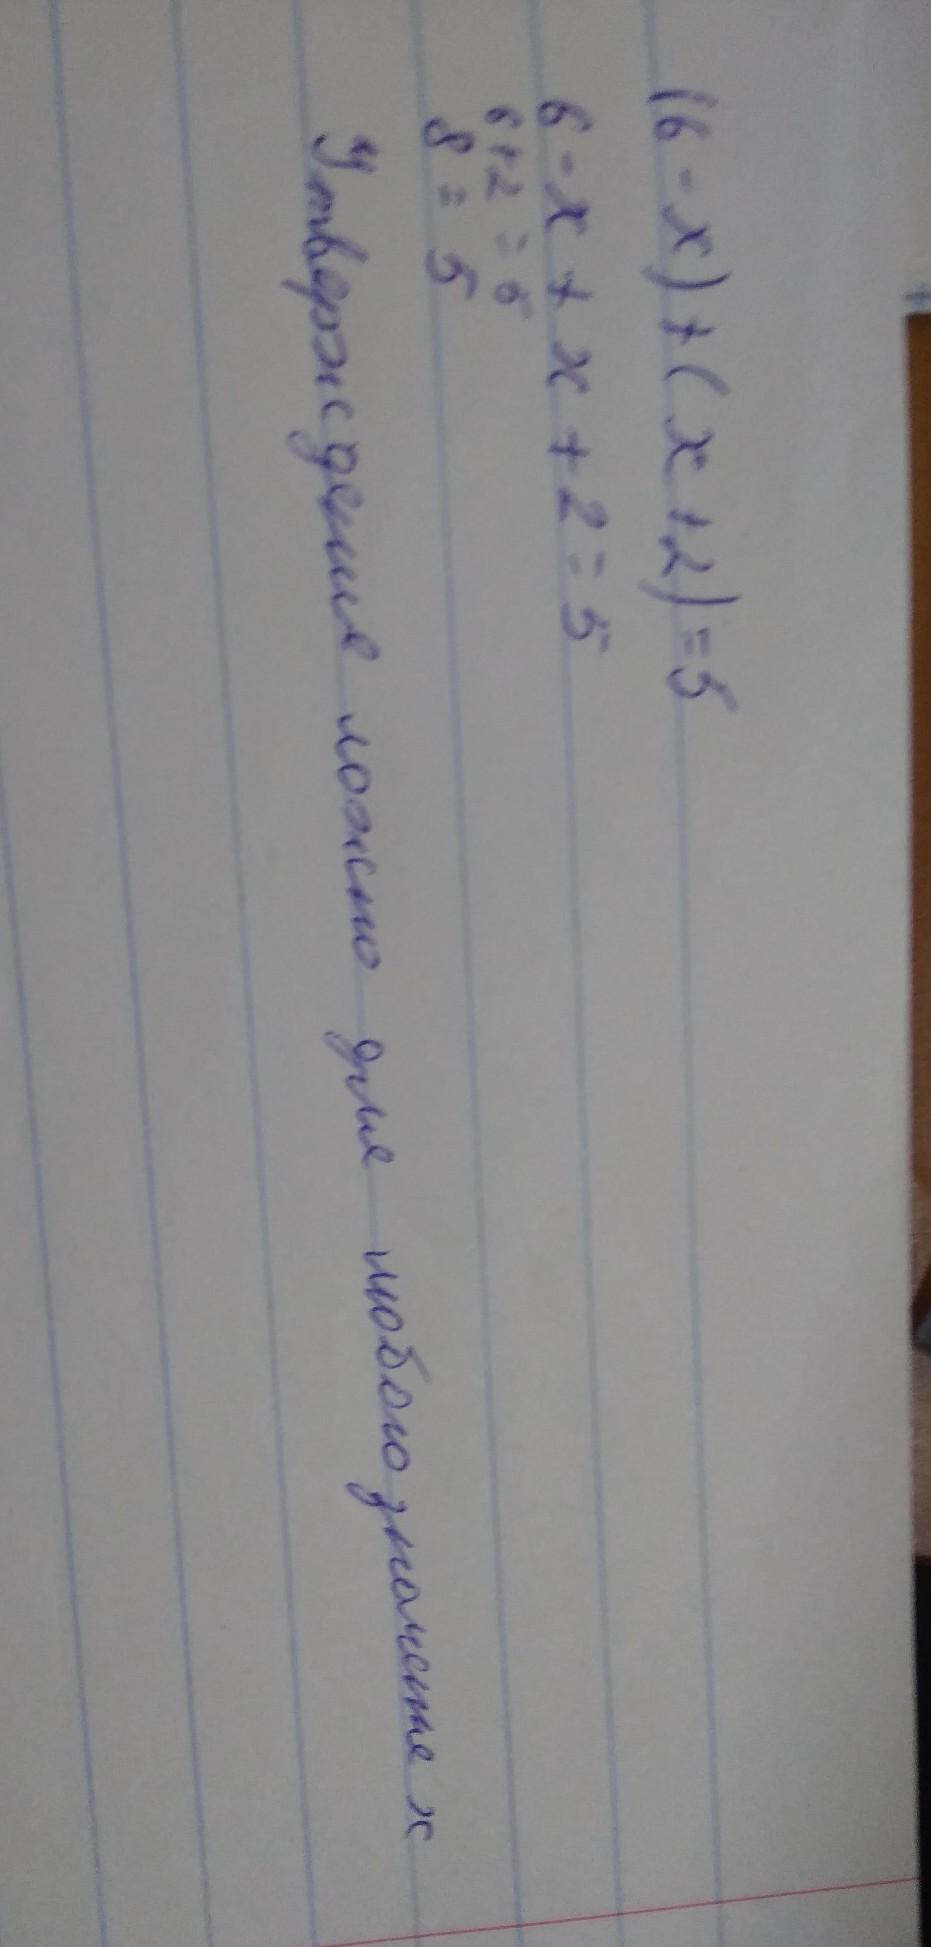 (6 - x) + (x + 2) = 5
6 - x + x + 2 = 5
6 + 2 = 5
8 = 5
Утверждение ложно для любого значение x